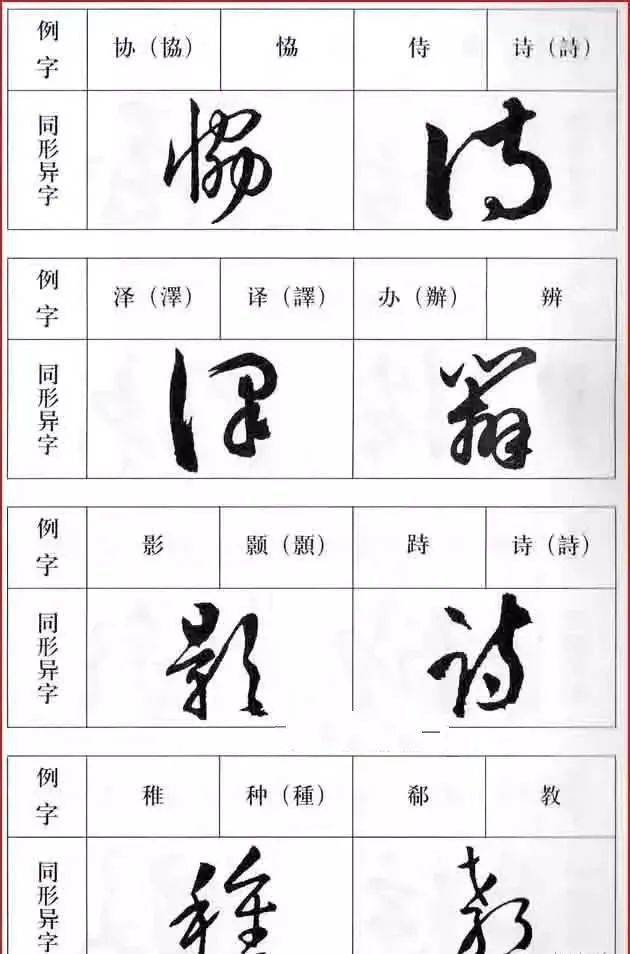 例字 协（協） 恊 侍 诗（詩）
同形异字
例字 泽（澤） 译（譯） 办（辦） 辨
同形异字
例字 影 颢（顥） 跱 诗（詩）
同形异字
例字 稚 种（種） 郗 教
同形异字